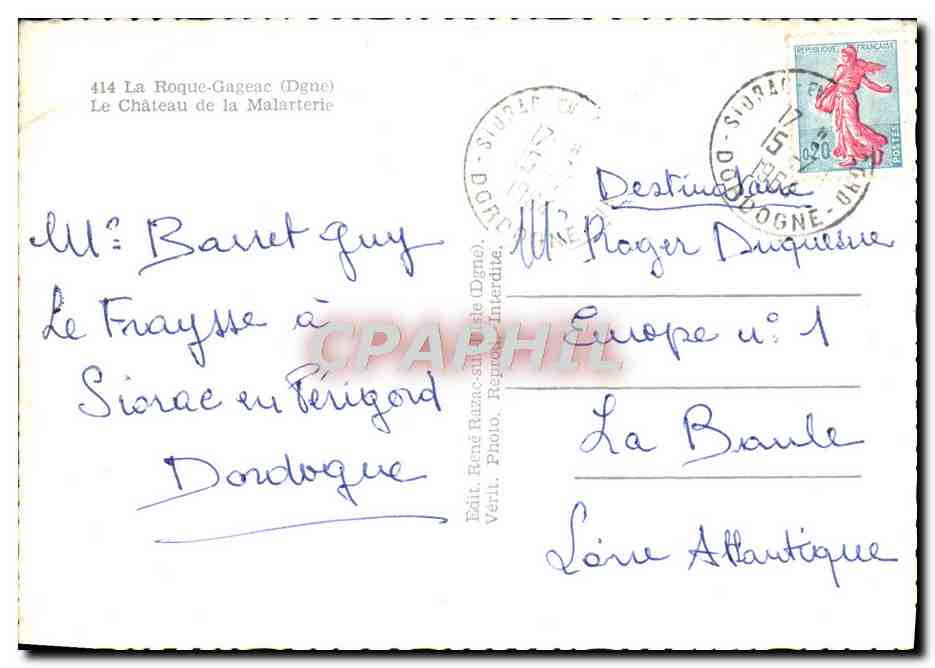 414 La Roque-Gageac (Dgne)
Le Château de la Malarterie
REPUBLIQUE FRANÇAISE
0,20
POSTES
SIORAC-EN-
17 H
15
DORDOGNE
Mr Barret Guy
Le Fraysse à
Siorac en Périgord
Dordogne
Edit. René Razac-sur-l'Isle (Dgne).
Vérit. Photo. Reprod. Interdite.
Destinataire
Mr Roger Duquesne
Europe n° 1
La Baule
Loire Atlantique
CPAPHIL